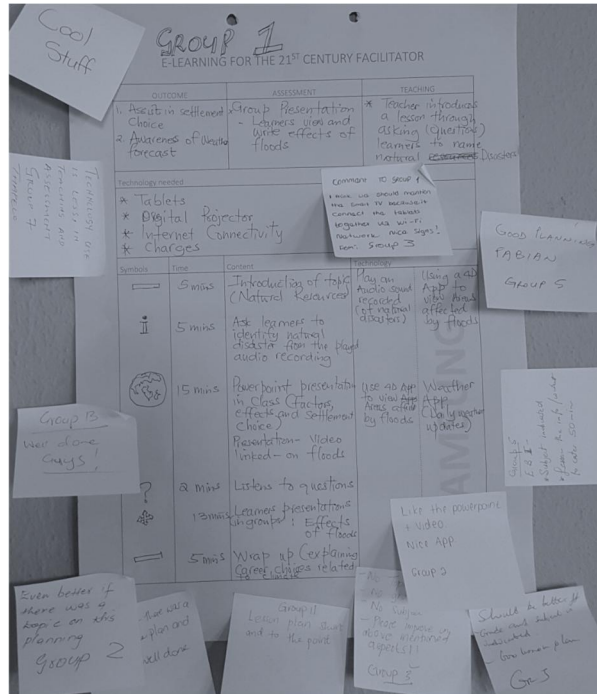 Cool
Stuff
GROUP 1
E-LEARNING FOR THE 21ST CENTURY FACILITATOR
OUTCOME
ASSESSMENT
TEACHING
1. Assist in settlement
Choice
2. Awareness of Weather
forecast
Group Presentation
- Learners view and
write effects of
floods
* Teacher introduces
a lesson through
asking (questions)
learners to name
natural Disasters
Technology needed
* Tablets
* Digital Projector
* Internet Connectivity
* Charges
Comment to Group 1
I think us should mention
the Smart TV because it
connect the tablets
together us wi-fi
network nice says!
From: Group 3
Symbols
Time
Content
Technology
5 mins
Introduction of topic
(Natural Resources)
Play an
Audio sound
recorded
(of natural
disasters)
Using a 4D
App to
view Areas
affected
by floods
i
5 mins
Ask learners to
identify natural
disaster from the played
audio recording
15 mins
Powerpoint presentation
in class (factors,
effects and Settlement
choice)
Presentation - Video
linked - on floods
use 4D App
to view
Areas
by floods
Weather
App
(Daily weather
updates)
?
2 mins
Listens to questions
13 mins
Learners presentations
in groups: Effects
of floods
5 mins
Wrap up (explaining
Career choices related
GOOD PLANNING
FABIAN
GROUP 5
Group 13
Well done
Guys!
Technology use
is less
App
Assessment
Group 7
Group 5
E.B.I -
Subject indicated
Like the powerpoint
+ Video
Nice App
Group 2
Even better if
there was a
topic on this
planning
Group 2
plan and
well done
Group 11
Lesson plan
and to the point
No Subject
- Please improve on
above mentioned
aspects!!
Group 3
Should be better if
Grade and subject is
indicated
Gr. 3